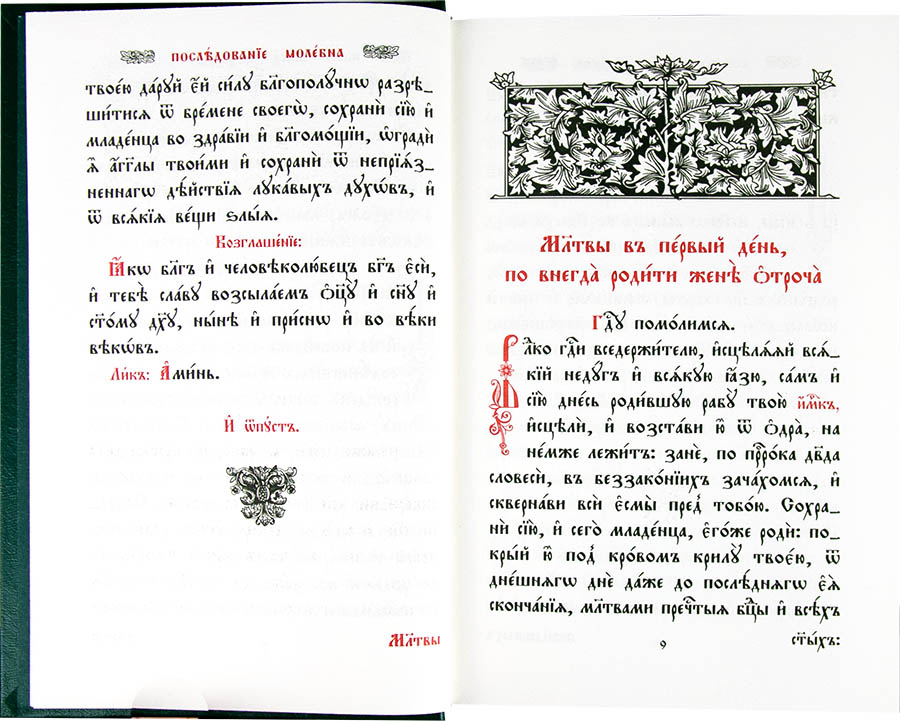 ПОСЛѢ́ДОВАНЇЕ МОЛЕ́БНА
твоє́ю да́рꙋй є҆́й си́лꙋ бл҃гополꙋ́чнѡ разрѣ-
ши́тисѧ ѿ бре́мене своегѡ̀, сохранѝ сїю̀ и҆
младе́нца во здра́вїи и҆ бл҃гомо́щїи, ѡ҆градѝ
ѧ҆̀ а҆́гг҃лы твои́ми и҆ сохранѝ ѿ непрїѧ́з-
неннагѡ дѣ́йствїѧ лꙋка́выхъ дꙋхѡ́въ, и҆
ѿ всѧ́кїѧ ве́щи ѕлы́ѧ.
Возглаше́нїе:
Ꙗ҆́кѡ бл҃гъ и҆ человѣколю́бецъ бг҃ъ є҆сѝ,
и҆ тебѣ̀ сла́вꙋ возсыла́емъ ѻ҆ц҃ꙋ̀ и҆ сн҃ꙋ и҆
ст҃о́мꙋ дх҃ꙋ, ны́нѣ и҆ при́снѡ и҆ во вѣ́ки
вѣкѡ́въ.
Ли́къ: А҆ми́нь.
И҆ ѿпꙋ́стъ.
Мл҃твы
Мл҃твы въ пе́рвый де́нь,
по внегда̀ роди́ти женѣ̀ ѻ҆троча̀
Гдⷭ҇ꙋ помо́лимсѧ.
Влⷣко гдⷭ҇и вседержи́телю, и҆сцѣлѧ́ѧй всѧ́-
кїй недꙋ́гъ и҆ всѧ́кꙋю ꙗ҆́зю, са́мъ и҆
сїю̀ дне́сь роди́вшꙋю рабꙋ̀ твою̀ и҆м҃къ,
и҆сцѣлѝ, и҆ возста́ви ю҆̀ ѿ ѻ҆дра̀, на
не́мже лежи́тъ: занѐ, по прⷪ҇ро́ка дв҃да
словесѝ, въ беззако́нїихъ зача́хомсѧ, и҆
скве́рнави всѝ є҆смы̀ пред̾ тобо́ю. Сохра-
нѝ сїю̀, и҆ сего̀ младе́нца, є҆го́же родѝ: по-
кры́й ю҆̀ под̾ кро́вомъ крилꙋ̀ твоє́ю, ѿ
дне́шнѧгѡ днѐ да́же до послѣ́днѧгѡ є҆ѧ̀
сконча́нїѧ, мл҃твами пречⷭ҇тыѧ бцⷣы и҆ всѣ́хъ
9
ст҃ы́хъ: